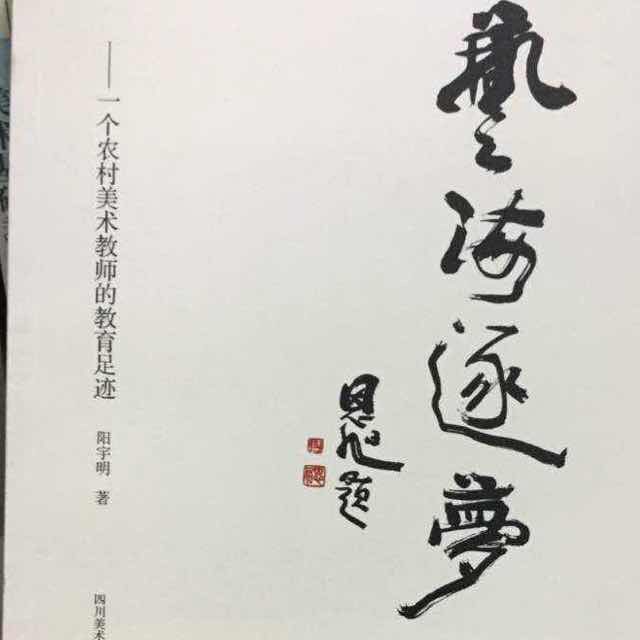 藝海逐夢
恩旭题
——一个农村美术教师的教育足迹
阳宇明 著
四川美术